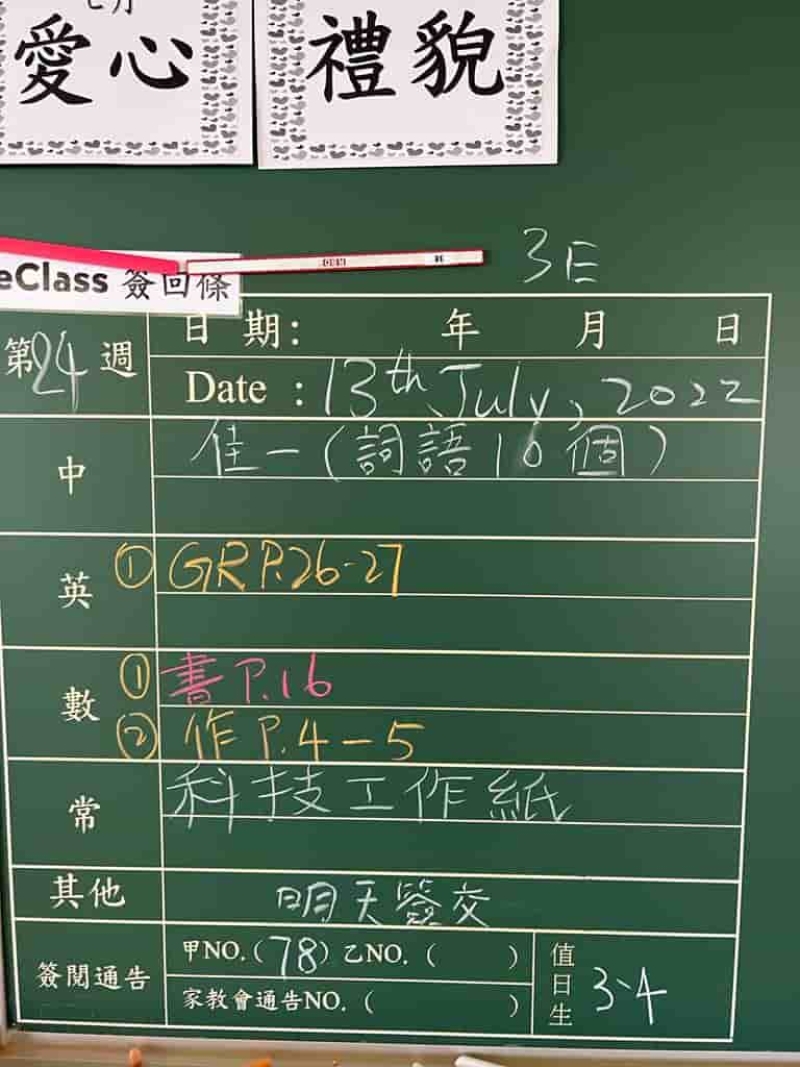 七月
愛心
禮貌
eClass 簽回條
3E
第24週
日期: 年 月 日
Date : 13th July, 2022
中
佳一(詞語10個)
英
① GR P.26-27
數
① 書 P.16
② 作 P.4-5
常
科技工作紙
其他
明天簽交
簽閱通告
甲NO.(78) 乙NO. ( )
家教會通告NO. ( )
值日生
3、4